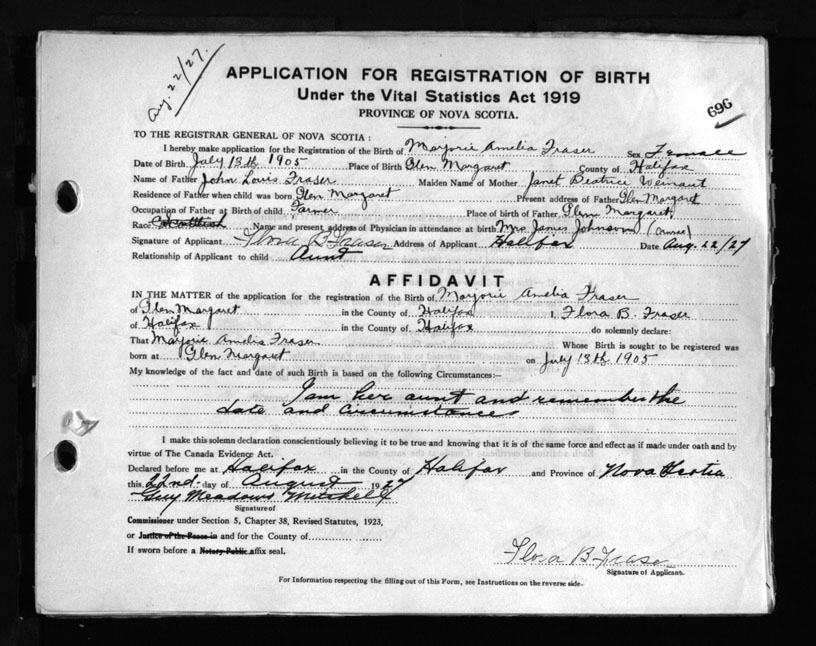 Aug. 22/27.
APPLICATION FOR REGISTRATION OF BIRTH
Under the Vital Statistics Act 1919
PROVINCE OF NOVA SCOTIA.
696
TO THE REGISTRAR GENERAL OF NOVA SCOTIA :
I hereby make application for the Registration of the Birth of Marjorie Amelia Fraser Sex Female
Date of Birth July 13th 1905 Place of Birth Glen Margaret County of Halifax
Name of Father John Louis Fraser Maiden Name of Mother Janet Beatrice
Residence of Father when child was born Glen Margaret Present address of Father Glen Margaret
Occupation of Father at Birth of child Farmer Place of birth of Father Glen Margaret
Race Scottish Name and present address of Physician in attendance at birth Mrs James Johnson
Signature of Applicant Flora B Fraser Address of Applicant Halifax Date Aug. 22/27
Relationship of Applicant to child Aunt
AFFIDAVIT
IN THE MATTER of the application for the registration of the Birth of Marjorie Amelia Fraser
of Glen Margaret in the County of Halifax I, Flora B. Fraser
of Halifax in the County of Halifax do solemnly declare:
That Marjorie Amelia Fraser Whose Birth is sought to be registered was
born at Glen Margaret on July 13th 1905
My knowledge of the fact and date of such Birth is based on the following Circumstances:—
I am her aunt and remember the
date and circumstances
I make this solemn declaration conscientiously believing it to be true and knowing that it is of the same force and effect as if made under oath and by
virtue of The Canada Evidence Act.
Declared before me at Halifax in the County of Halifax and Province of Nova Scotia
this 22nd day of August 1927
Guy Meadows Mitchell
Signature of
Commissioner under Section 5, Chapter 38, Revised Statutes, 1923,
or Justice of the Peace in and for the County of
If sworn before a Notary Public affix seal.
Flora B Fraser
Signature of Applicant.
For Information respecting the filling out of this Form, see Instructions on the reverse side.